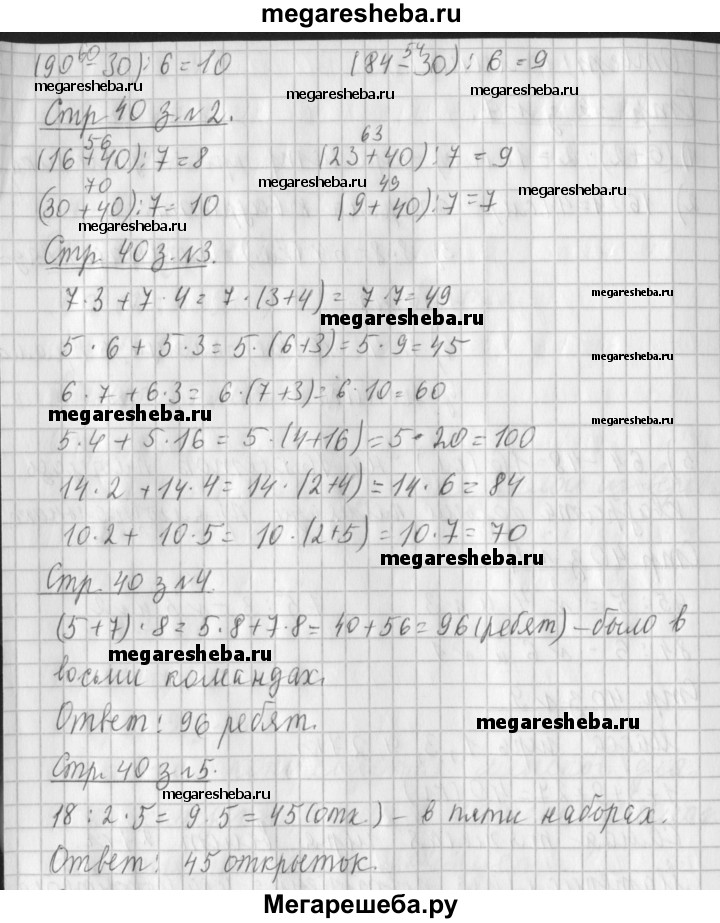 megaresheba.ru
60 54
(90 − 30) : 6 = 10 (84 − 30) : 6 = 9
megaresheba.ru megaresheba.ru megaresheba.ru
Стр. 40 з. №2.
56 63
(16 + 40) : 7 = 8 (23 + 40) : 7 = 9
70 megaresheba.ru 49 megaresheba.ru
(30 + 40) : 7 = 10 (9 + 40) : 7 = 7
megaresheba.ru
Стр. 40 з. №3.
7 · 3 + 7 · 4 = 7 · (3+4) = 7 · 7 = 49 megaresheba.ru
megaresheba.ru
5 · 6 + 5 · 3 = 5 · (6+3) = 5 · 9 = 45 megaresheba.ru
6 · 7 + 6 · 3 = 6 · (7 + 3) = 6 · 10 = 60
megaresheba.ru megaresheba.ru
5 · 4 + 5 · 16 = 5 · (4+16) = 5 · 20 = 100
14 · 2 + 14 · 4 = 14 · (2+4) = 14 · 6 = 84
10 · 2 + 10 · 5 = 10 · (2+5) = 10 · 7 = 70
megaresheba.ru
Стр. 40 з №4.
(5 + 7) · 8 = 5 · 8 + 7 · 8 = 40 + 56 = 96 (ребят) – было в
megaresheba.ru
восьми командах.
Ответ: 96 ребят.
megaresheba.ru
Стр. 40 з №5.
megaresheba.ru
18 : 2 · 5 = 9 · 5 = 45 (отк.) – в пяти наборах.
Ответ: 45 открыток.
Мегарешеба.ру